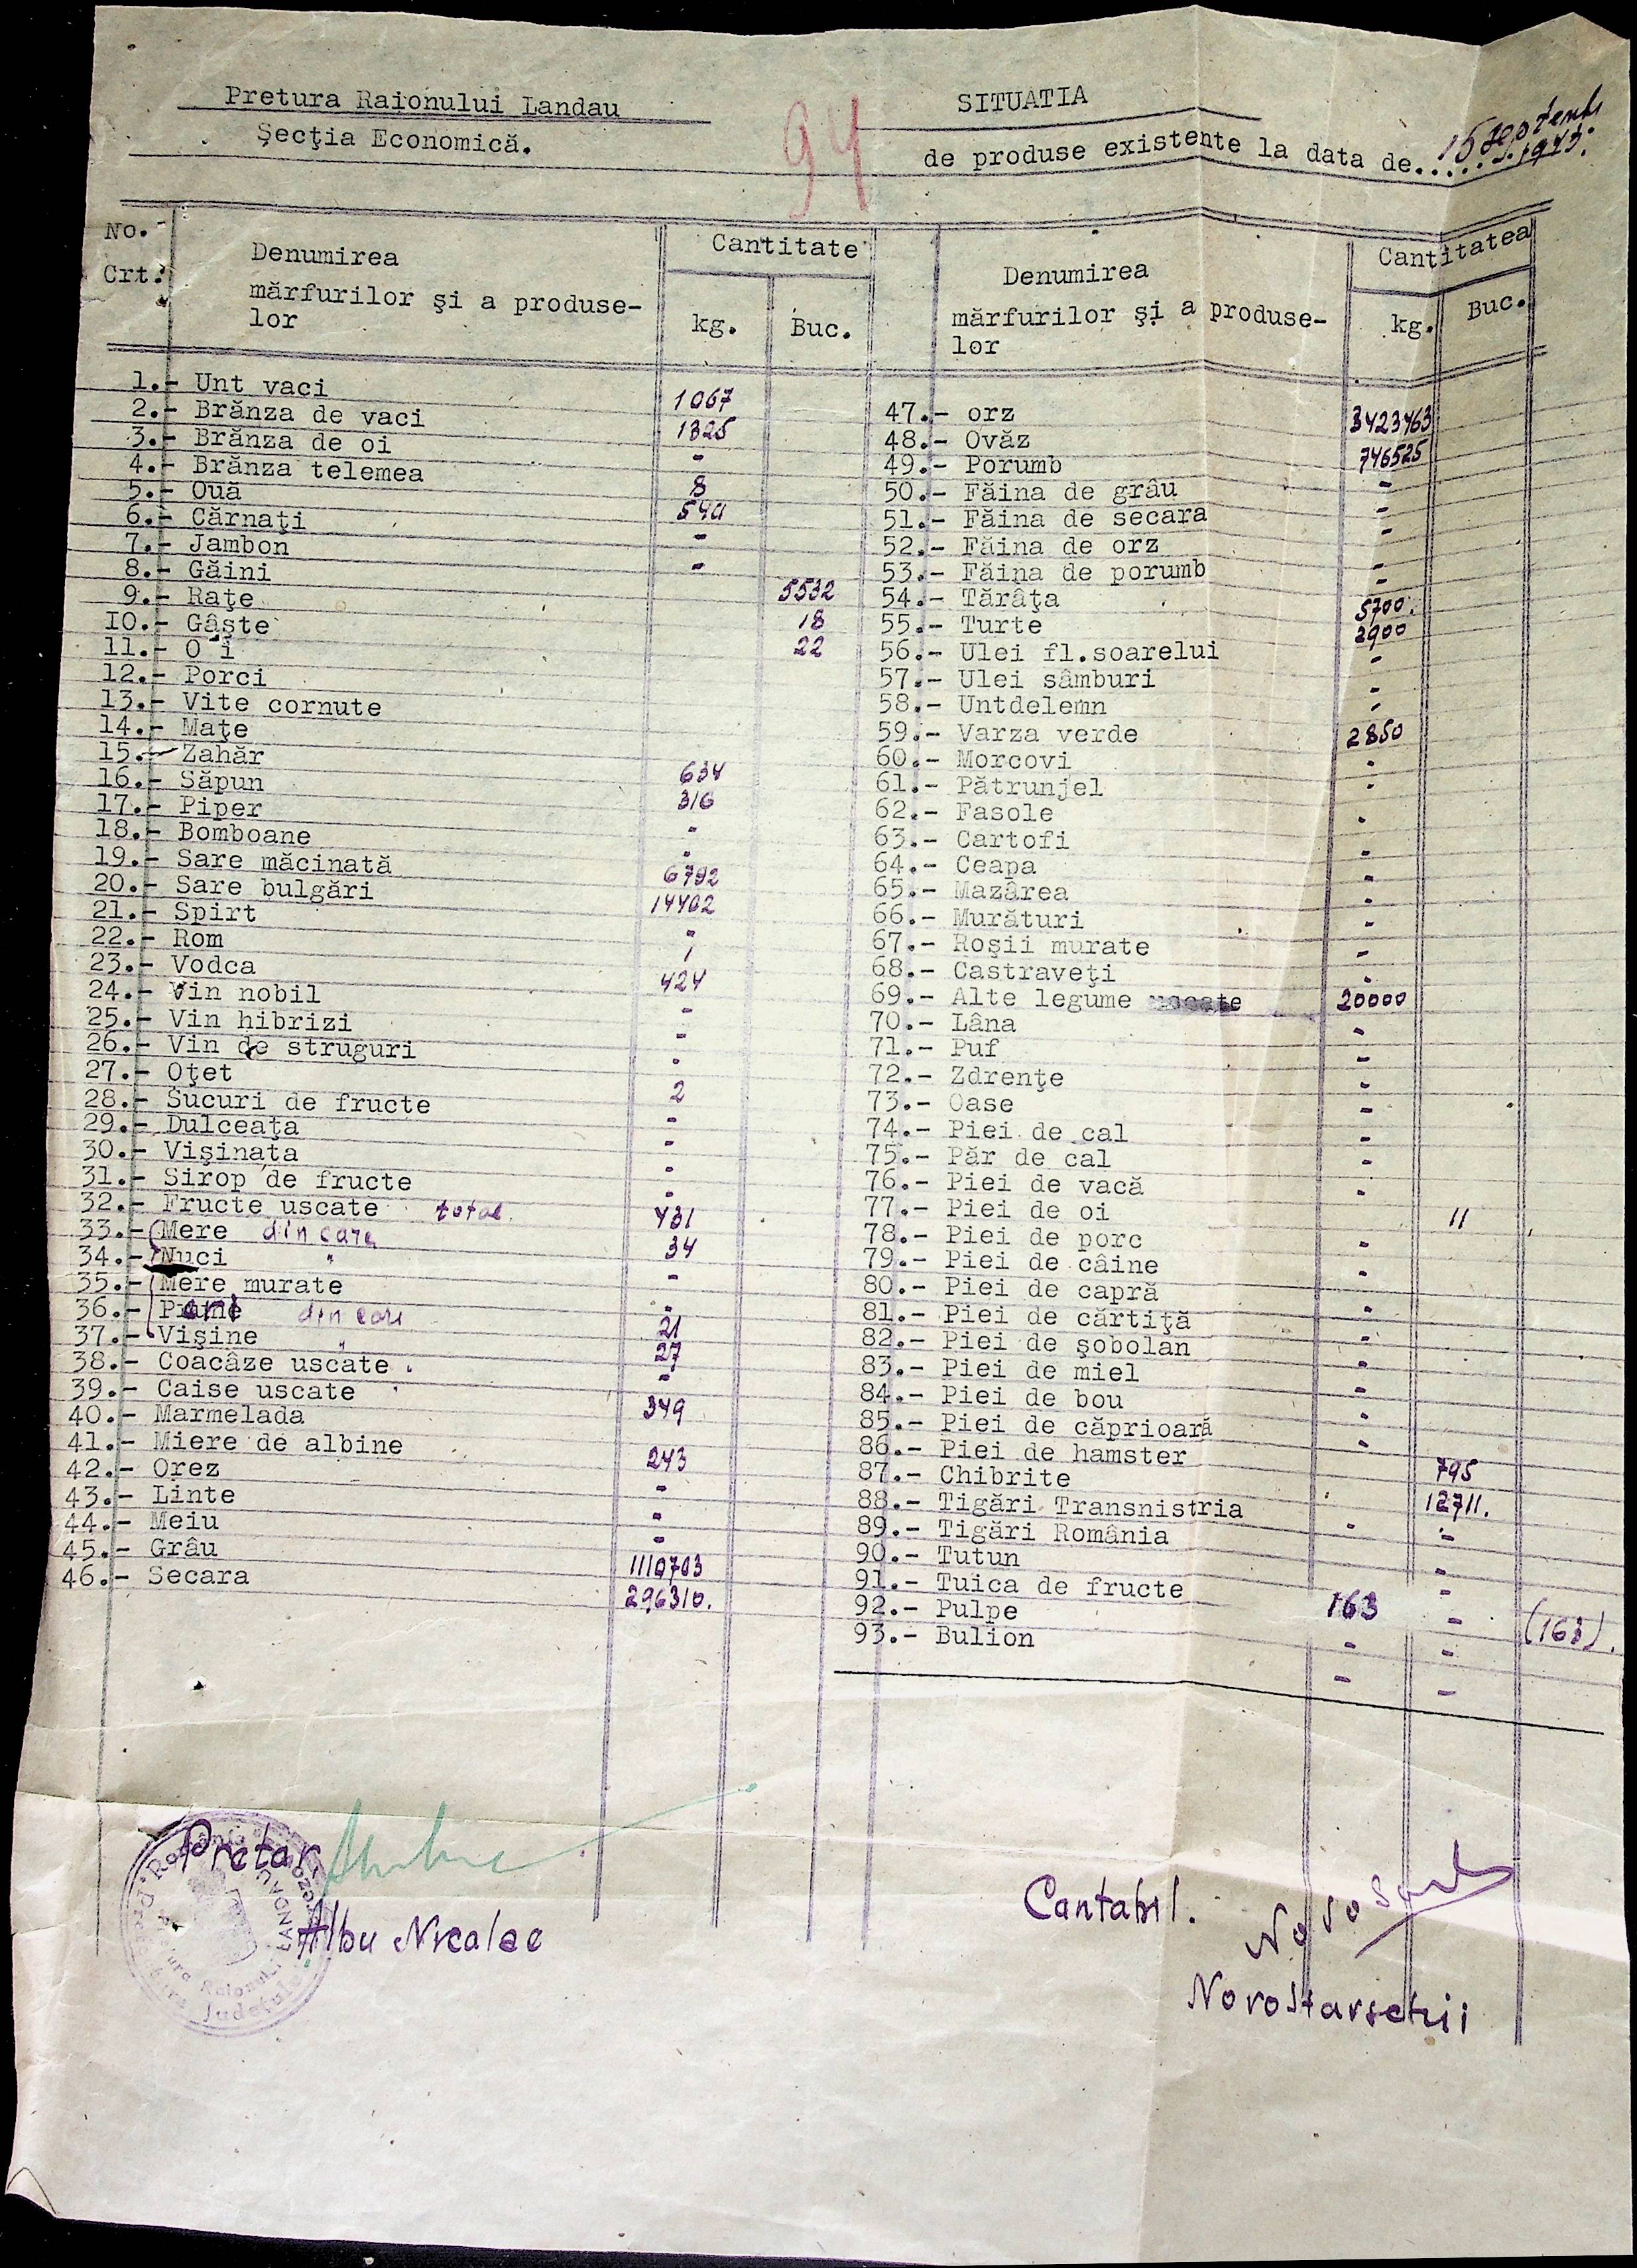 Pretura Raionului Landau
Secţia Economică.
94
SITUATIA
de produse existente la data de..... 15 Septemb 1943.
No. Crt.
Denumirea mărfurilor şi a produse-lor
Cantitate
kg.
Buc.
Denumirea mărfurilor şi a produse-lor
Cantitatea
kg.
Buc.
1.- Unt vaci 1067
2.- Brănza de vaci 1325
3.- Brănza de oi -
4.- Brănza telemea 8
5.- Ouă
6.- Cărnaţi -
7.- Jambon -
8.- Găini 5532
9.- Raţe 18
10.- Gâşte 22
11.- O i
12.- Porci
13.- Vite cornute
14.- Maţe
15.- Zahăr 634
16.- Săpun 316
17.- Piper -
18.- Bomboane -
19.- Sare măcinată 6792
20.- Sare bulgări 14402
21.- Spirt -
22.- Rom
23.- Vodca 424
24.- Vin nobil -
25.- Vin hibrizi -
26.- Vin de struguri -
27.- Oţet 2
28.- Sucuri de fructe -
29.- Dulceaţa -
30.- Vişinata -
31.- Sirop de fructe -
32.- Fructe uscate total 431
33.- Mere din care 34
34.- Nuci " -
35.- Mere murate -
36.- din care 21
37.- Vişine " 27
38.- Coacâze uscate -
39.- Caise uscate 349
40.- Marmelada
41.- Miere de albine 243
42.- Orez -
43.- Linte -
44.- Meiu -
45.- Grâu 1110703
46.- Secara 296310.
47.- orz 3423463
48.- Ovăz 746525
49.- Porumb -
50.- Făina de grâu -
51.- Făina de secara -
52.- Făina de orz -
53.- Făina de porumb -
54.- Tărâţa 5700.
55.- Turte 2900
56.- Ulei fl.soarelui -
57.- Ulei sâmburi -
58.- Untdelemn -
59.- Varza verde 2850
60.- Morcovi -
61.- Pătrunjel -
62.- Fasole -
63.- Cartofi -
64.- Ceapa -
65.- Mazârea -
66.- Murături -
67.- Roşii murate -
68.- Castraveţi -
69.- Alte legume 20000
70.- Lâna -
71.- Puf -
72.- Zdrenţe -
73.- Oase -
74.- Piei de cal -
75.- Păr de cal -
76.- Piei de vacă -
77.- Piei de oi 11
78.- Piei de porc -
79.- Piei de câine -
80.- Piei de capră -
81.- Piei de cărtiţă -
82.- Piei de şobolan -
83.- Piei de miel -
84.- Piei de bou -
85.- Piei de căprioară -
86.- Piei de hamster 795
87.- Chibrite 12711.
88.- Tigări Transnistria -
89.- Tigări România -
90.- Tutun -
91.- Tuica de fructe 163 - (163).
92.- Pulpe - -
93.- Bulion - -
Pretor
Albu Nicolae
Contabil.
Novostavschii
LANDAU
Judeţului